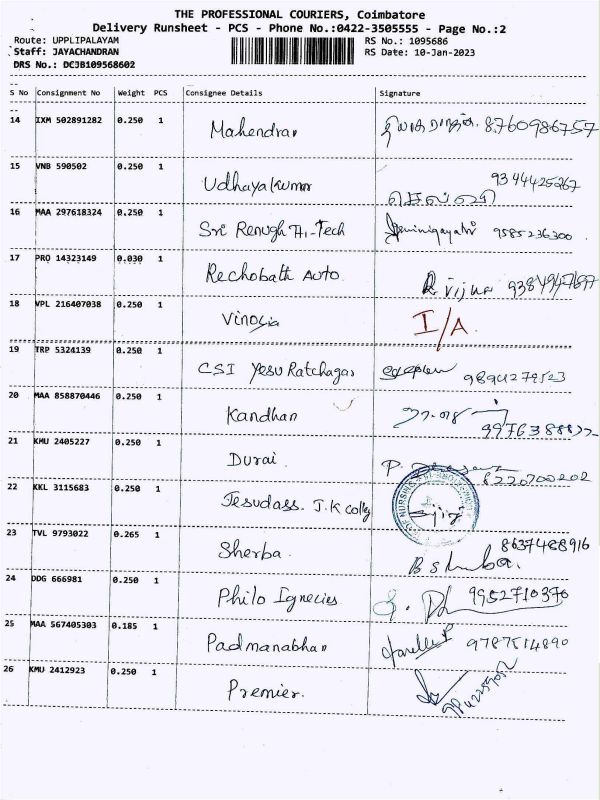 THE PROFESSIONAL COURIERS, Coimbatore
Delivery Runsheet - PCS - Phone No.:0422-3505555 - Page No.:2
Route: UPPLIPALAYAM RS No.: 1095686
Staff: JAYACHANDRAN RS Date: 10-Jan-2023
DRS No.: DCJB109568602
S No Consignment No Weight PCS Consignee Details Signature
14 IXM 502891282 0.250 1 Mahendran 8760986757
15 VNB 590502 0.250 1 Udhayakumar 9344425267
செல்வி
16 MAA 297618324 0.250 1 Sri Renugh Hi-Tech 9585236300
17 PRO 14323149 0.030 1 Rechobath Auto. R Vijya
18 VPL 216407038 0.250 1 Vinosia I/A.
19 TRP 5324139 0.250 1 CSI Yesu Ratchagar 9894279523
20 MAA 858870446 0.250 1 Kandhan
21 KMU 2405227 0.250 1 Durai. P. 8220700202
22 KKL 3115683 0.250 1 Jesudass. J.K colleg
23 TVL 9793022 0.265 1 Sherba. 8637488916
24 DDG 666981 0.250 1 Philo Ignecies 9952710370
25 MAA 567405303 0.185 1 Padmanabhan 9787514890
26 KMU 2412923 0.250 1 Premier.